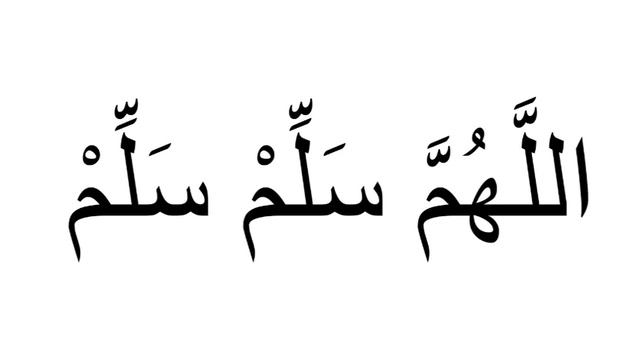 اللَّهُمَّ سَلِّمْ سَلِّمْ